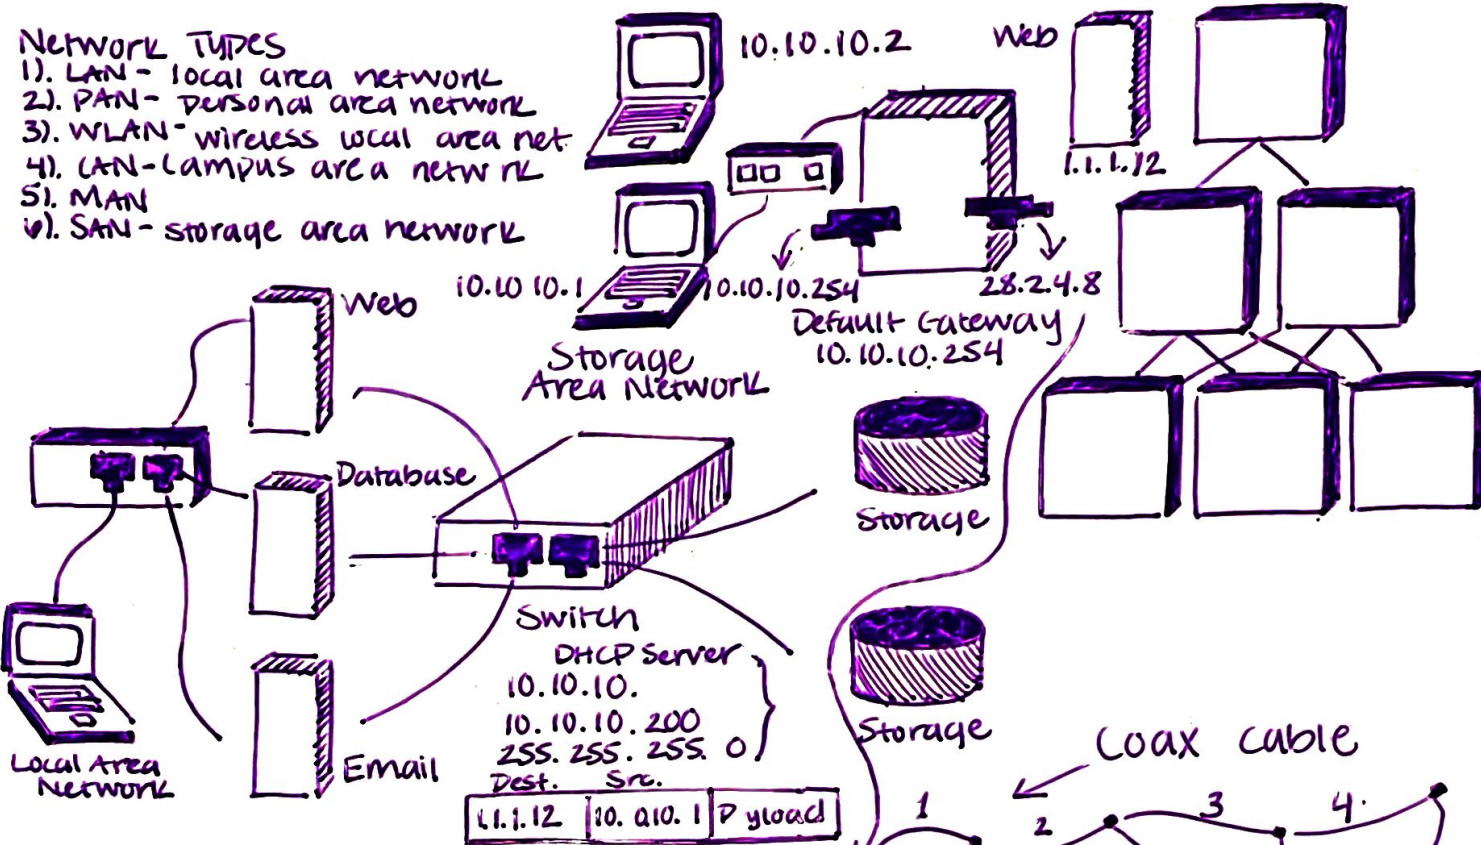 Network Types
1). LAN - local area network
2). PAN - personal area network
3). WLAN - wireless local area net.
4). CAN - Campus area netw rk
5). MAN
6). SAN - storage area network
10.10.10.2
Web
1.1.1.12
10.10 10.1
10.10.10.254
28.2.4.8
Default Gateway
10.10.10.254
Storage
Area Network
Web
Database
Email
Local Area
Network
Switch
Storage
Storage
DHCP Server
10.10.10.
10.10.10.200
255.255.255. 0
Dest. Src.
1.1.1.12 10. 0.10. 1 P yload
Coax cable
1 2 3 4.